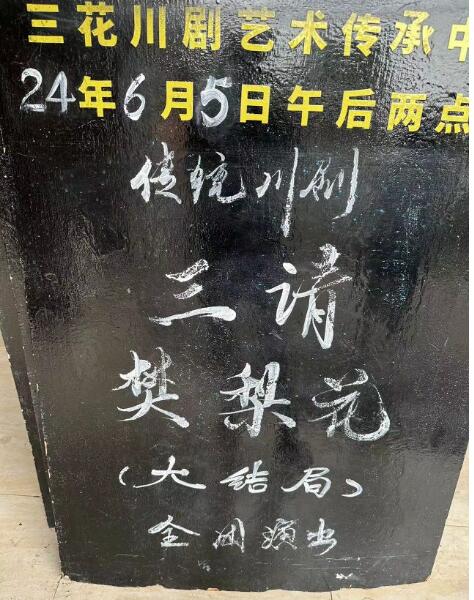 三花川剧艺术传承中
24年6月5日午后两点
传统川剧
三请
樊梨花
(大结局)
全团演出